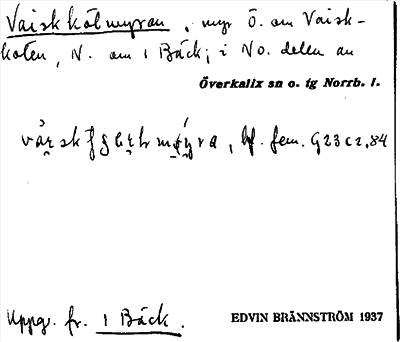 Vaiskkölmyran, myr Ö. om Vaisk-
kölen, N. om 1 Bäck; i NO. delen av
Överkalix sn o. tg Norrb. l.
bf. fem. G23c2,84
Uppg. fr. 1 Bäck.
EDVIN BRÄNNSTRÖM 1937